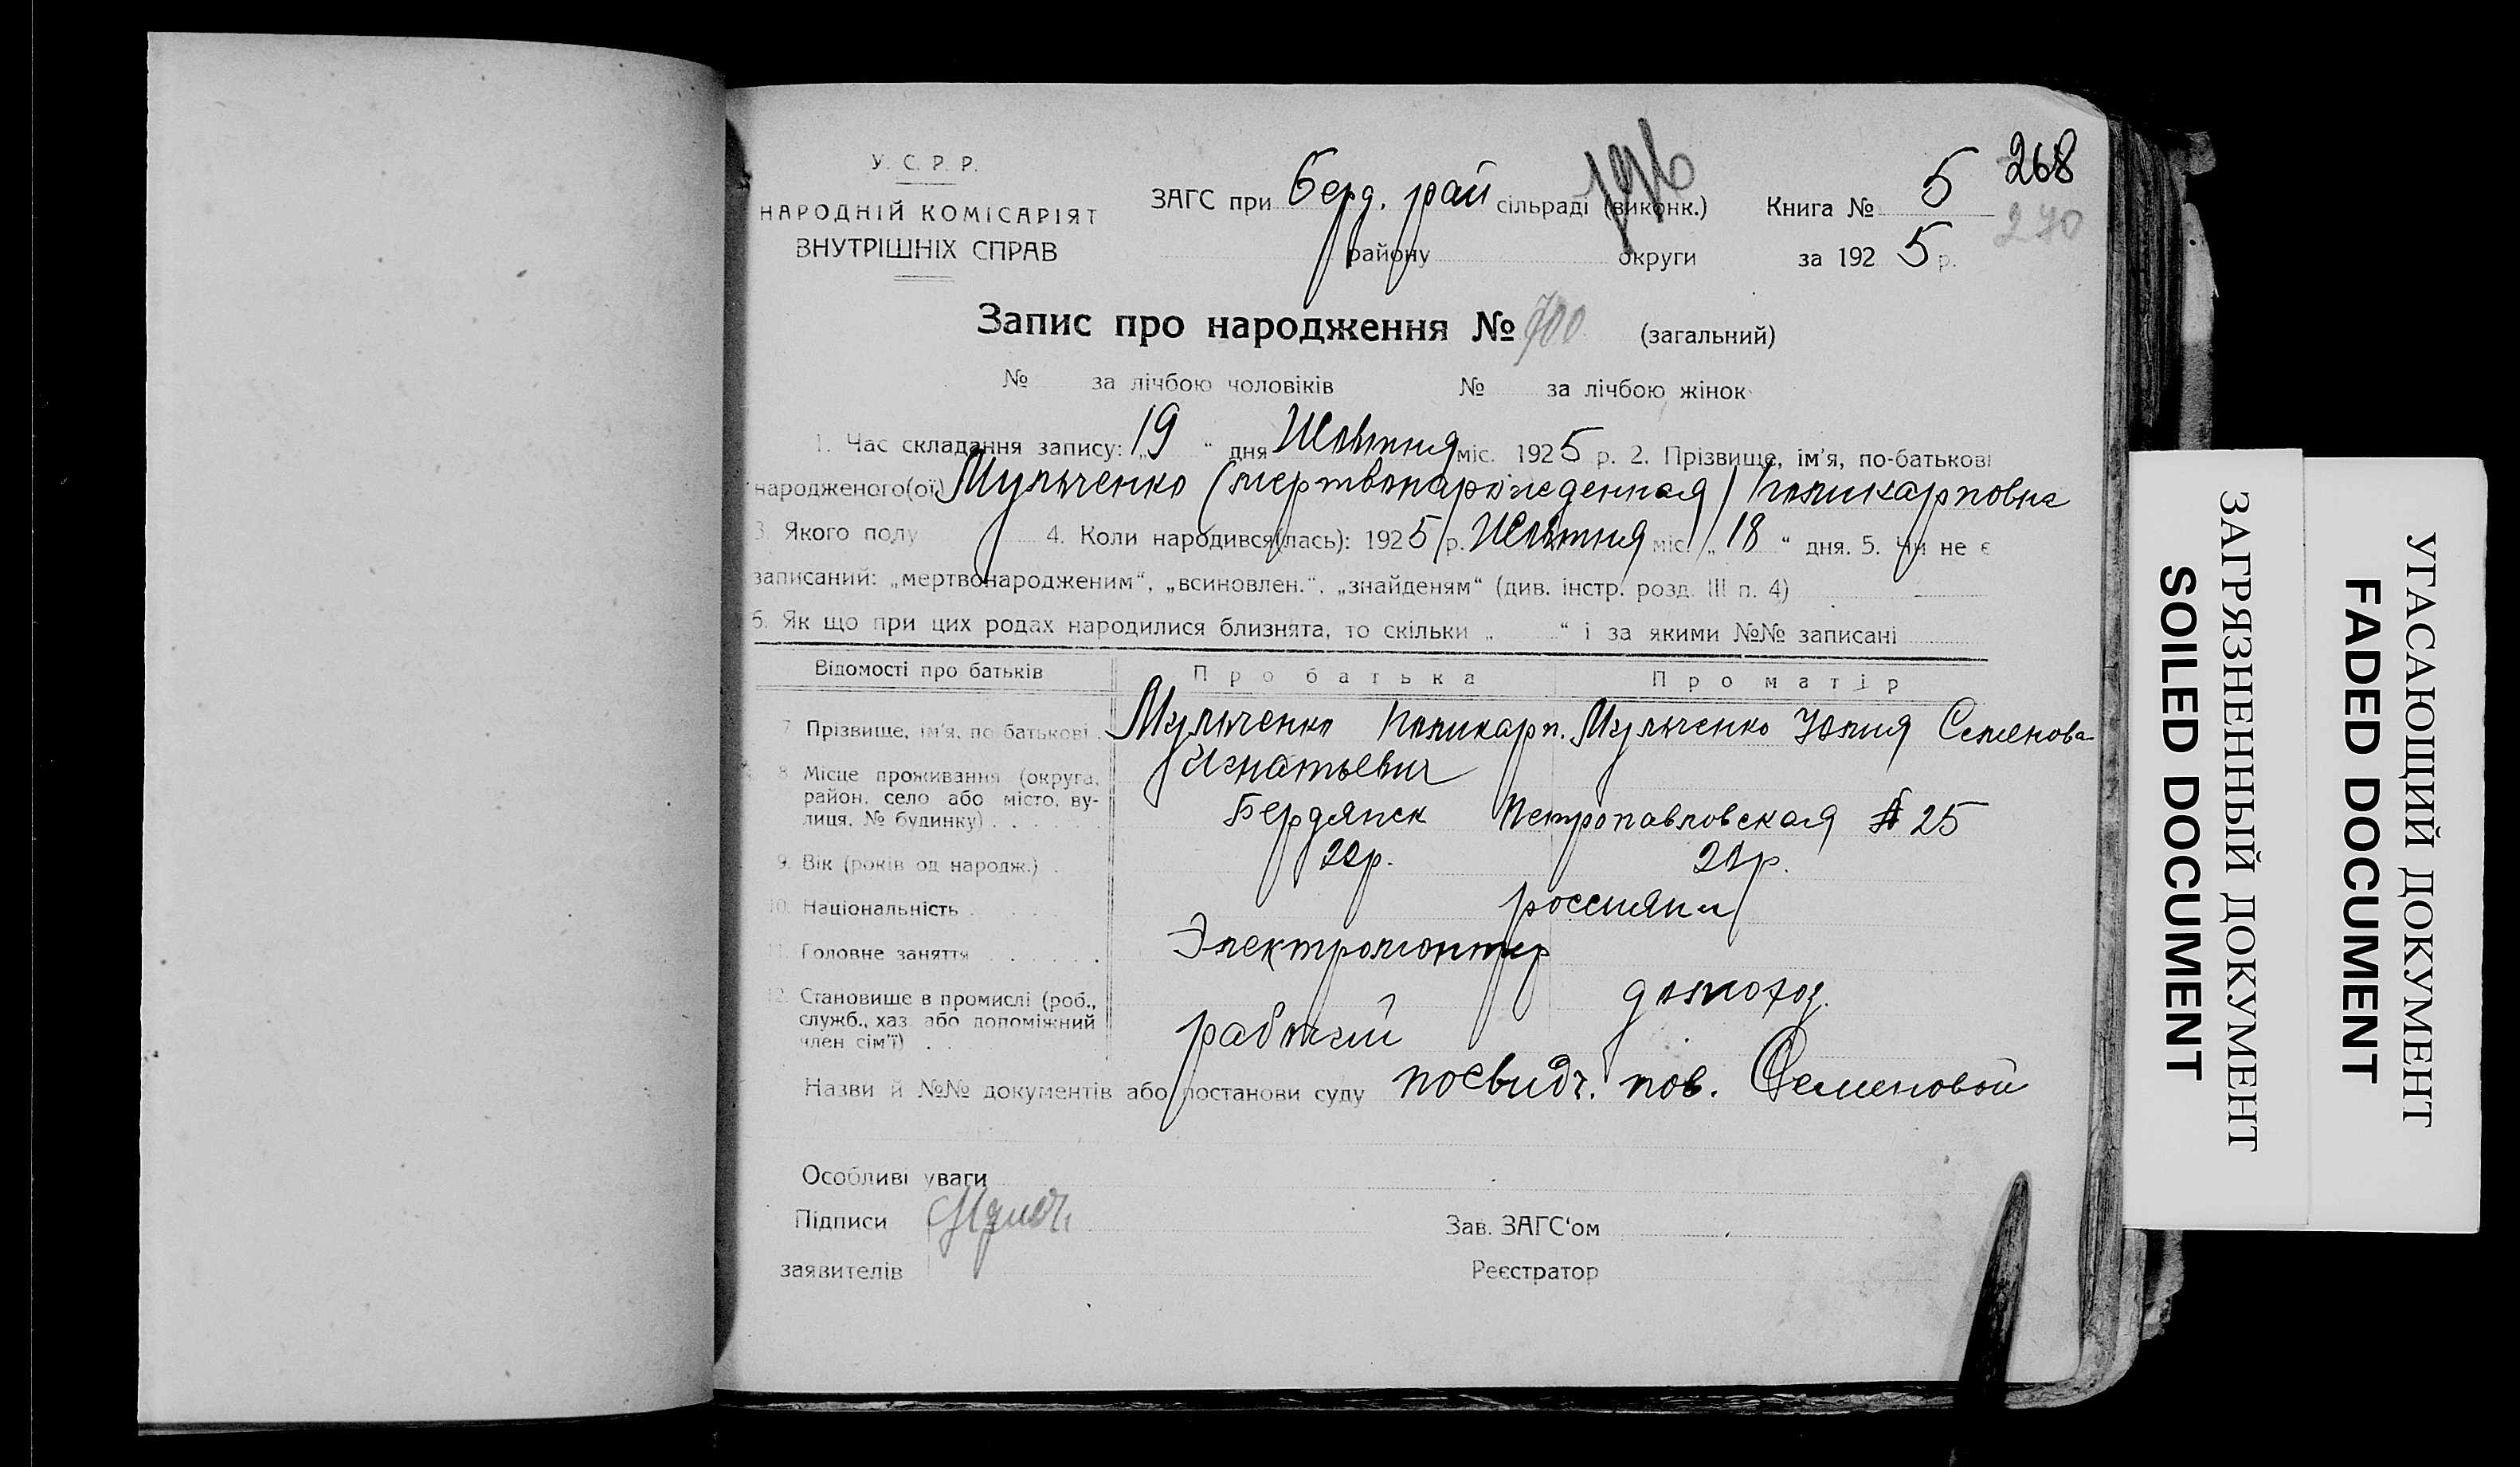 У. С. Р. Р.
НАРОДНІЙ КОМІСАРІЯТ
ВНУТРІШНІХ СПРАВ
ЗАГС при Берд. рай сільраді (виконк.) Книга № 5 268
270
району округи за 192 5 р.
Запис про народження № 700 (загальний)
№ за лічбою чоловіків № за лічбою жінок
1. Час складання запису: „19“ дня Жовтня міс. 1925 р. 2. Прізвище, ім'я, по-батькові
народженого(ої) Мульченко (мертворожденная) Поликарповна
3. Якого полу 4. Коли народився(лась): 1925 р. Жовтня міс. „18“ дня. 5. Чи не є
записаний: „мертвонародженим“, „всиновлен.“, „знайденям“ (див. інстр. розд. III п. 4)
6. Як що при цих родах народилися близнята, то скільки „ “ і за якими №№ записані
Відомості про батьків Про батька Про матір
7. Прізвище, ім'я, по батькові. Мульченко Поликарп. Мульченко Юлия Семенова
Игнатьевич
8. Місце проживання (округа,
район, село або місто, ву-
лиця, № будинку) Бердянск Петропавловская № 25
9. Вік (років од народж.) 22р. 21р.
10. Національність россияни
11. Головне заняття Электромонтер
домохоз.
12. Становище в промислі (роб.,
служб., хаз. або допоміжний
член сім'ї) рабочий
Назви й №№ документів або постанови суду посвидч. пов. Семеновой
Особливі уваги
Підписи
Зав. ЗАГС'ом
заявителів
Реєстратор
ЗАГРЯЗНЕННЫЙ ДОКУМЕНТ
SOILED DOCUMENT
УГАСАЮЩИЙ ДОКУМЕНТ
FADED DOCUMENT